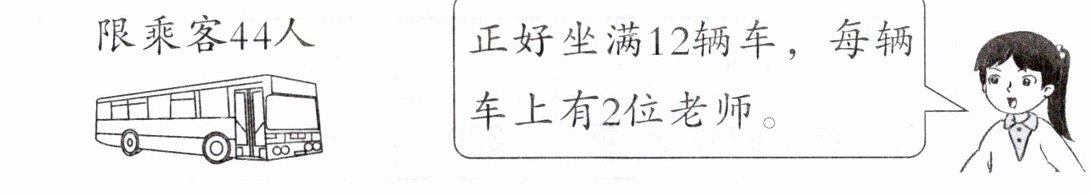 限乘客44人
正好坐满12辆车，每辆
车上有2位老师。